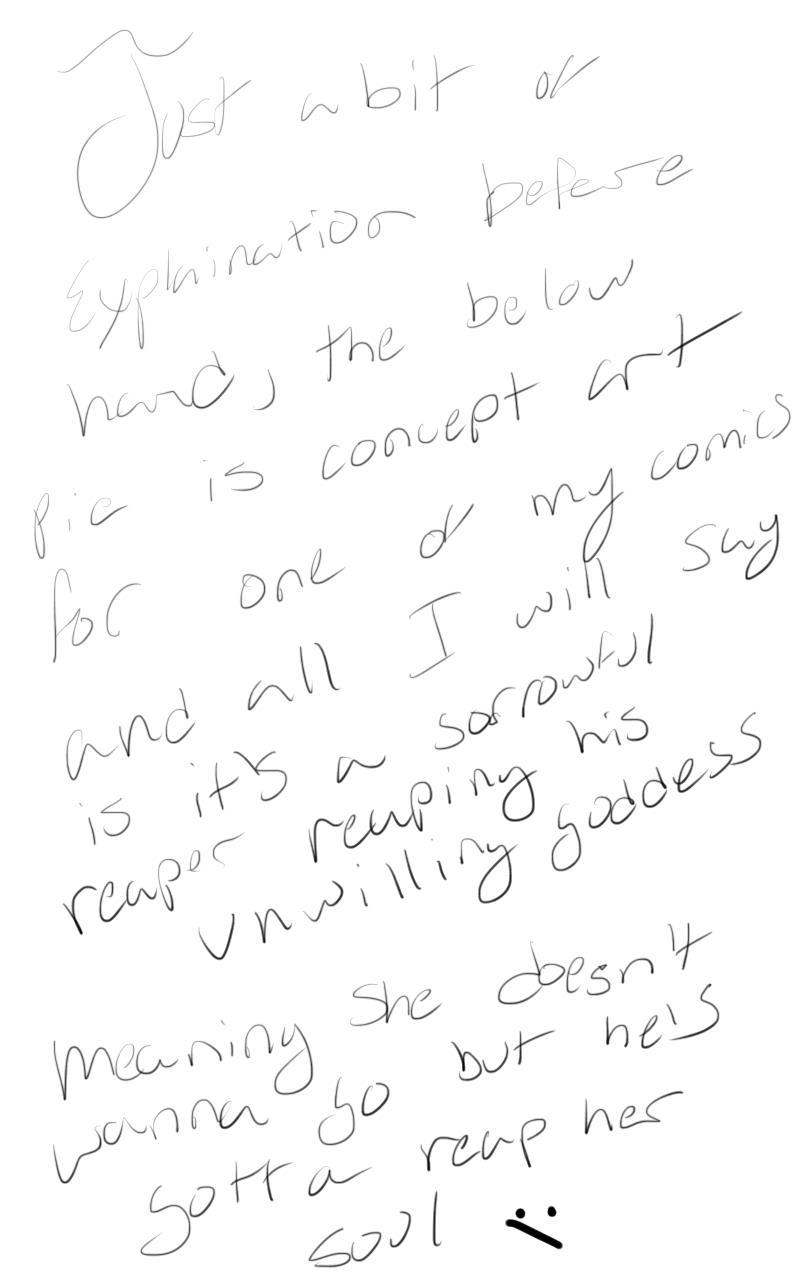 Just a bit of
Explaination before
hand, the below
pic is concept art
for one of my comics
and all I will say
is it's a sorrowful
reaper reaping his
unwilling goddess
Meaning she doesn't
wanna go but he's
gotta reap her
soul :\